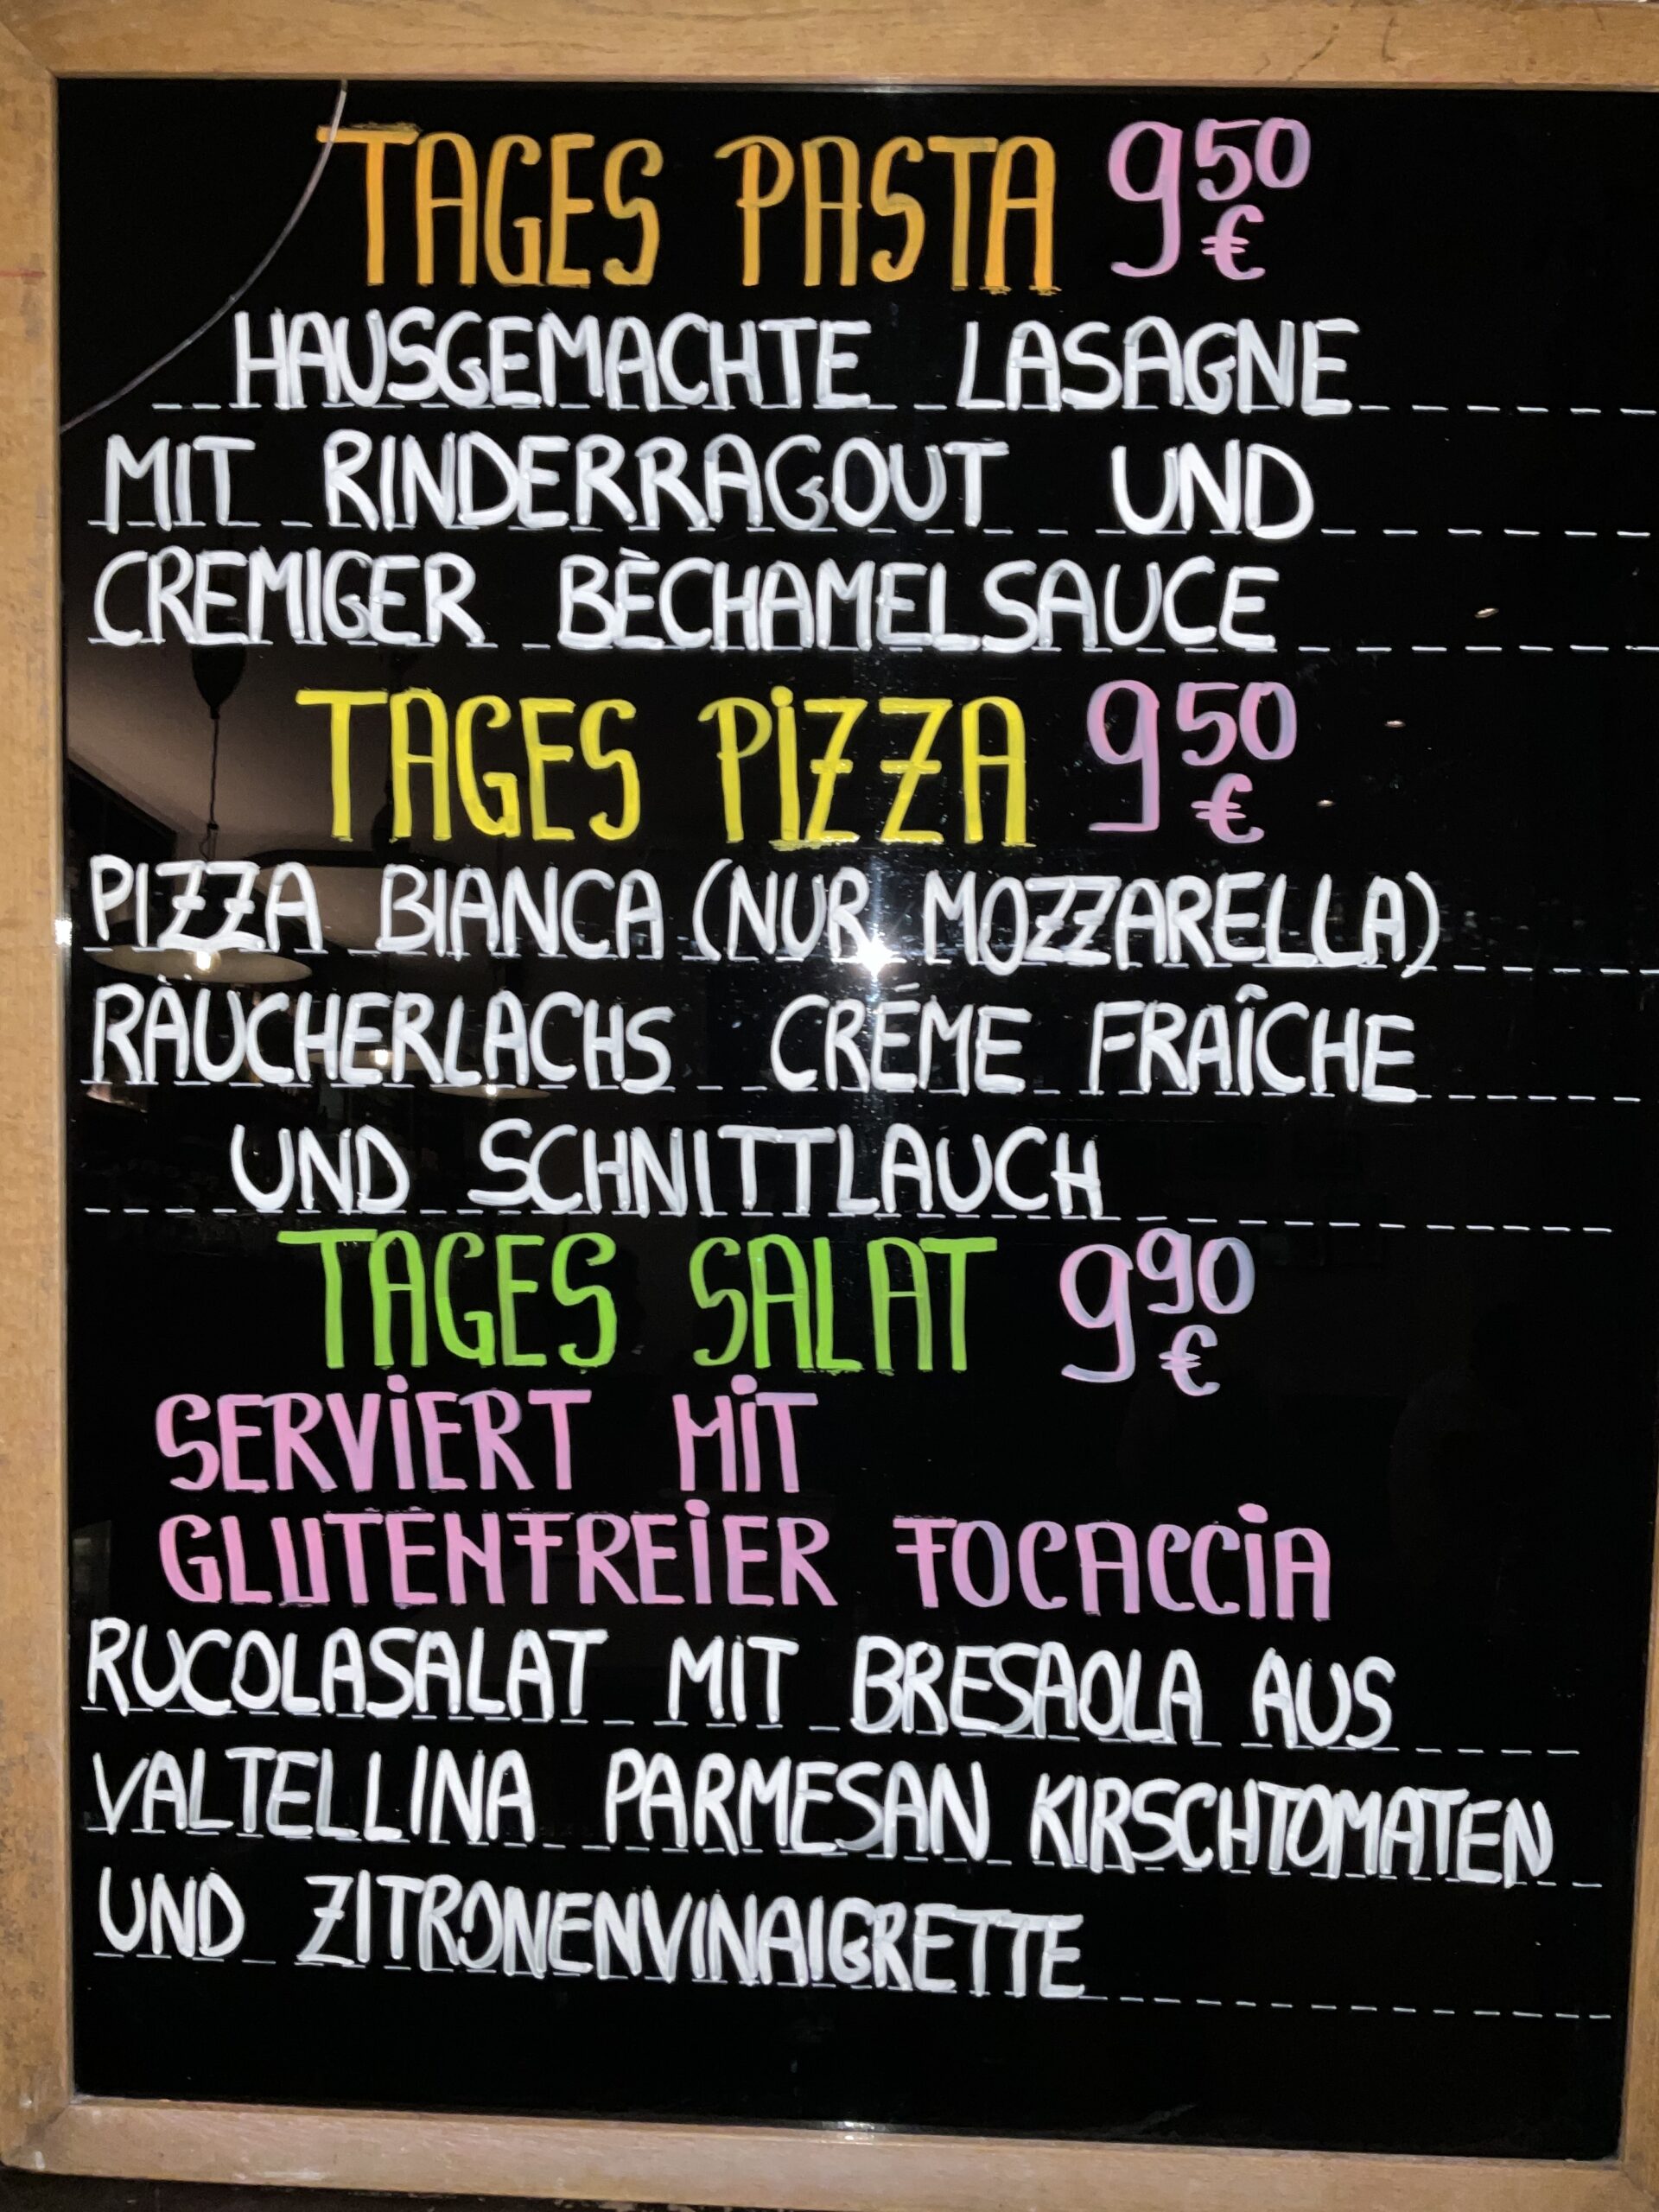 TAGES PASTA 950 €
HAUSGEMACHTE LASAGNE
MIT RINDERRAGOUT UND
CREMIGER BÈCHAMELSAUCE
TAGES PiZZA 950 €
PIZZA BIANCA (NUR MOZZARELLA)
RÄUCHERLACHS CRÉME FRAÎCHE
UND SCHNITTLAUCH
TAGES SALAT 990 €
SERViERT MiT
GLUTENFREiER FOCACCiA
RUCOLASALAT MIT BRESAOLA AUS
VALTELLINA PARMESAN KIRSCHTOMATEN
UND ZITRONENVINAIGRETTE